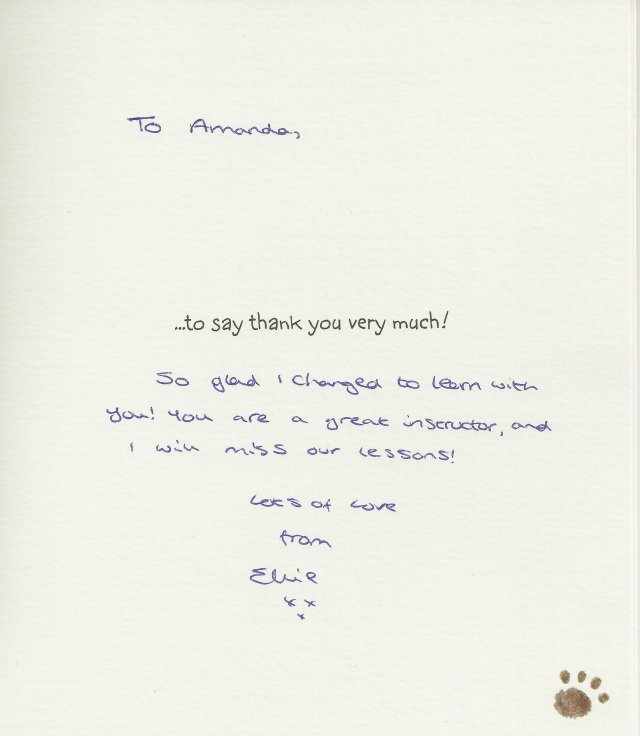 To Amanda,
...to say thank you very much!
So glad I changed to learn with
you! You are a great instructor, and
I will miss our lessons!
Lots of love
from
Ellie
x x
x